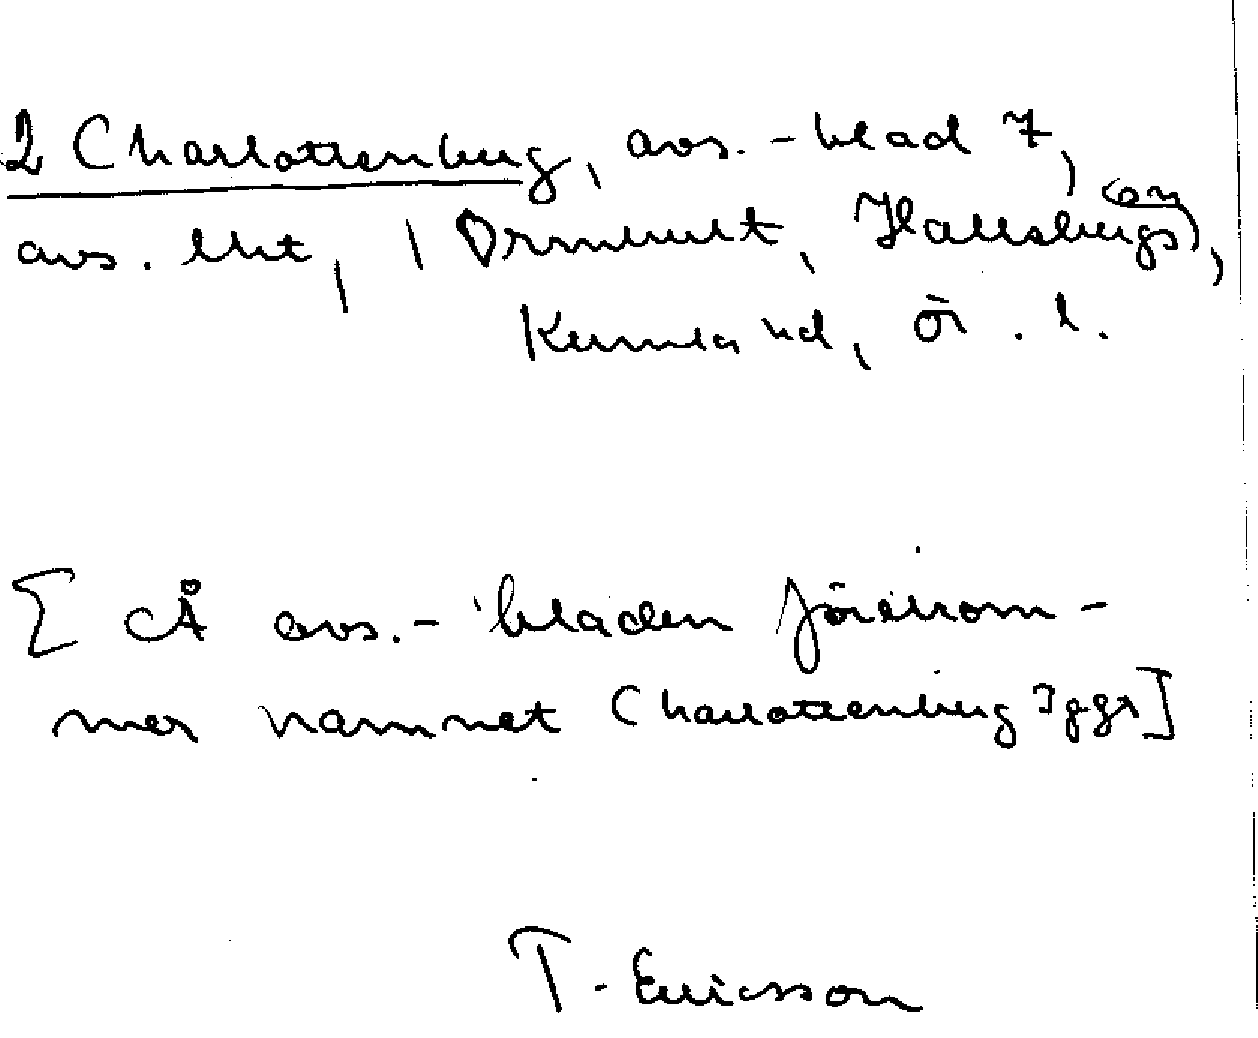 2 Charlottenberg, avs.-blad 7,
avs. lht, i Ormhult, Hallsbergs sn,
Kumla hd, Ör. l.
[Å avs.-bladen förekom-
mer namnet Charlottenberg 3 ggr]
T. Ericsson